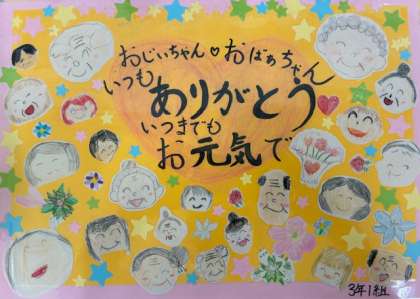 おじいちゃん♡おばあちゃん
いつも
ありがとう
いつまでも
お元気で
3年1組